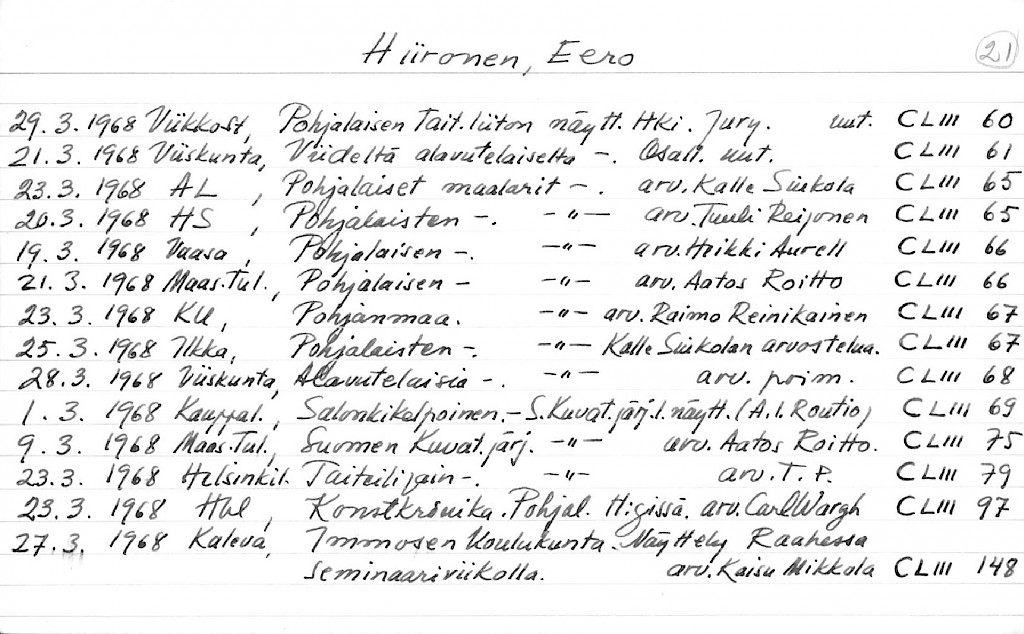 Hiironen, Eero 21
29.3.1968 Viikkost, Pohjalaisen Tait.liiton näytt. Hki. Jury. uut. CLIII 60
21.3.1968 Viiskunta, Viideltä alavutelaiselta -. Osall. uut. CLIII 61
23.3.1968 AL, Pohjalaiset maalarit -. arv. Kalle Siukola CLIII 65
20.3.1968 HS, Pohjalaisten -. -"- arv. Tuuli Reijonen CLIII 65
19.3.1968 Vaasa, Pohjalaisen -. -"- arv. Heikki Aurell CLIII 66
21.3.1968 Maas.Tul., Pohjalaisen - -"- arv. Aatos Roitto CLIII 66
23.3.1968 KU, Pohjanmaa. -"- arv. Raimo Reinikainen CLIII 67
25.3.1968 Ilkka, Pohjalaisten -. -"- Kalle Siukolan arvostelua. CLIII 67
28.3.1968 Viiskunta, Alavutelaisia -. -"- arv. poim. CLIII 68
1.3.1968 Kauppal., Salonkikelpoinen. - S.Kuvat.järj.l. näytt. (A.I. Routio) CLIII 69
9.3.1968 Maas.Tul., Suomen Kuvat.järj. -"- arv. Aatos Roitto. CLIII 75
23.3.1968 Helsinkil. Taiteilijain -. -"- arv. T.P. CLIII 79
23.3.1968 Hbl, Konstkrönika. Pohjal. H:gissä. arv. Carl Wargh CLIII 97
27.3.1968 Kaleva, Immosen Koulukunta. Näyttely Raahessa
seminaariviikolla. arv. Kaisu Mikkola CLIII 148